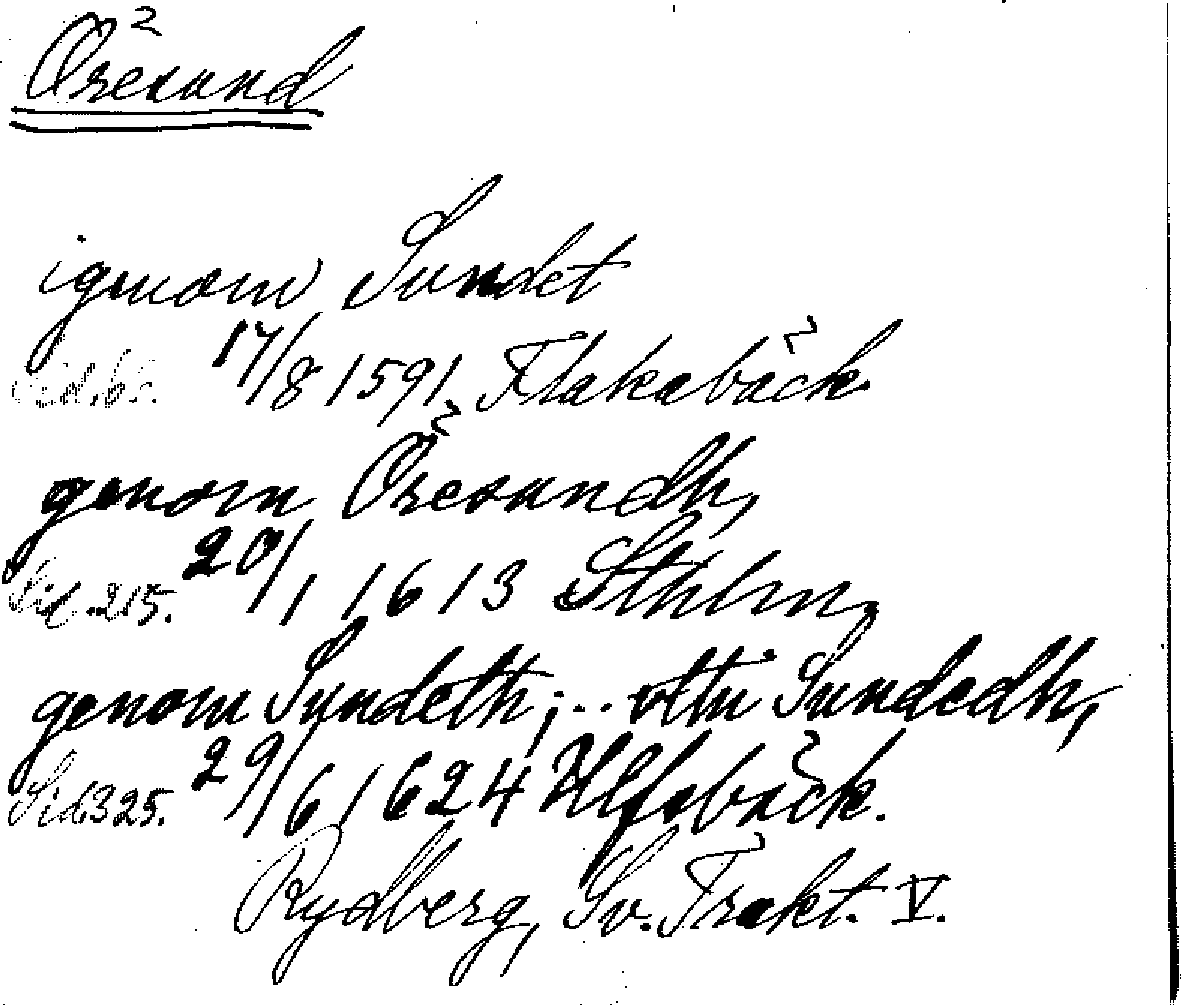 Öresund
igenom Sundet
Sid. 65. 17/8 1591 Flakabäck
genom Öresundh,
Sid. 215. 20/1 1613 Sthlm,
genom Sundeth; .. vthi Sundedh,
Sid. 325. 29/6 1624 Ulfsbäck.
Rydberg, Sv. Trakt. V.